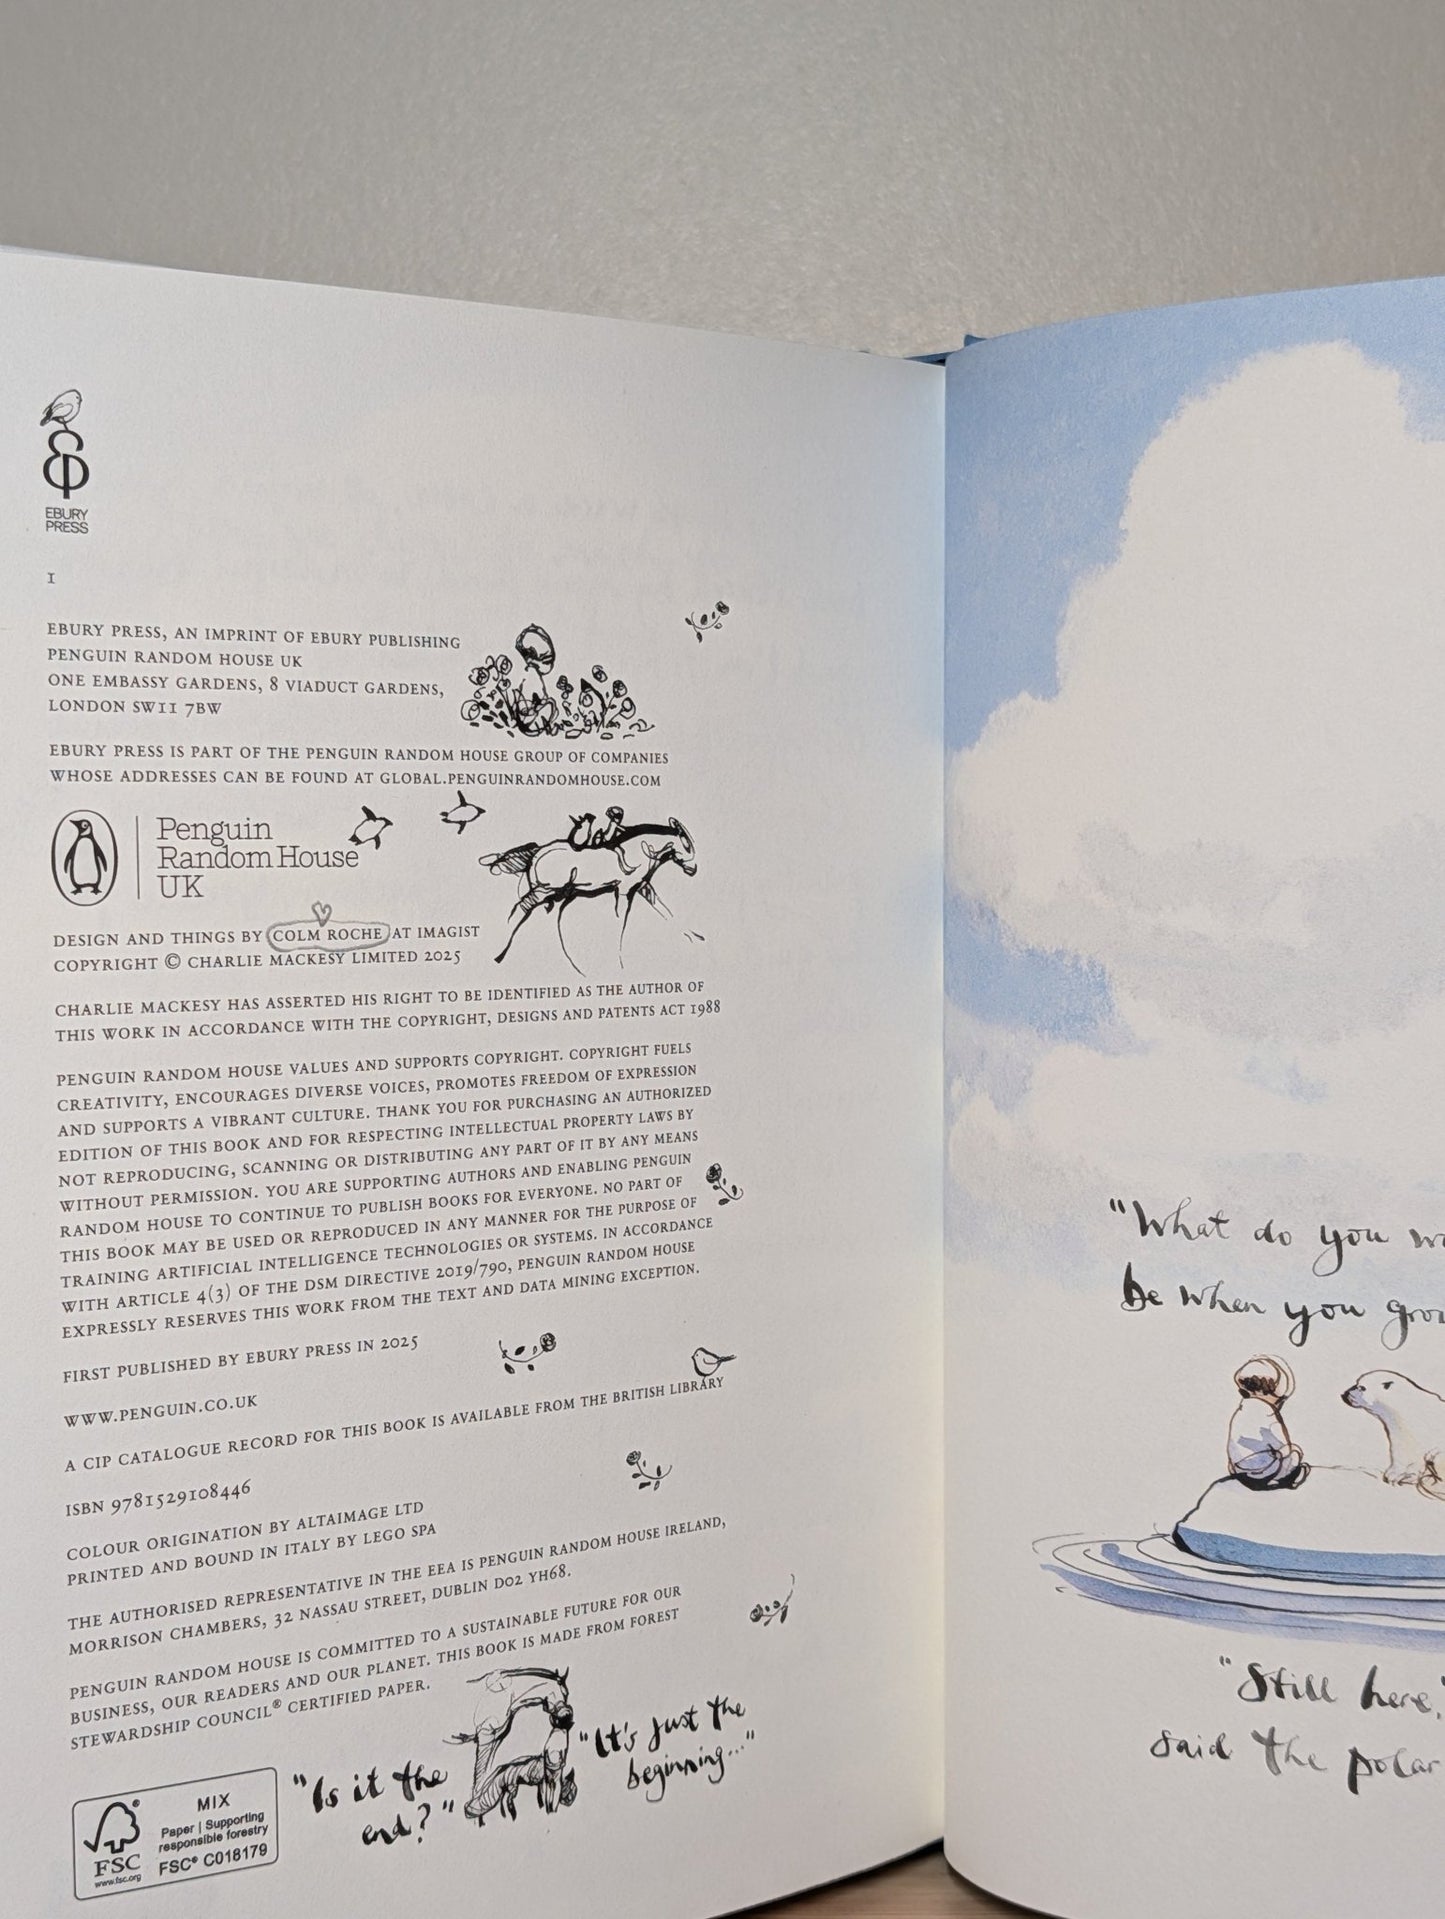 EBURY
PRESS
1
EBURY PRESS, AN IMPRINT OF EBURY PUBLISHING
PENGUIN RANDOM HOUSE UK
ONE EMBASSY GARDENS, 8 VIADUCT GARDENS,
LONDON SW11 7BW
EBURY PRESS IS PART OF THE PENGUIN RANDOM HOUSE GROUP OF COMPANIES
WHOSE ADDRESSES CAN BE FOUND AT GLOBAL.PENGUINRANDOMHOUSE.COM
Penguin
Random House
UK
DESIGN AND THINGS BY COLM ROCHE AT IMAGIST
COPYRIGHT © CHARLIE MACKESY LIMITED 2025
CHARLIE MACKESY HAS ASSERTED HIS RIGHT TO BE IDENTIFIED AS THE AUTHOR OF
THIS WORK IN ACCORDANCE WITH THE COPYRIGHT, DESIGNS AND PATENTS ACT 1988
PENGUIN RANDOM HOUSE VALUES AND SUPPORTS COPYRIGHT. COPYRIGHT FUELS
CREATIVITY, ENCOURAGES DIVERSE VOICES, PROMOTES FREEDOM OF EXPRESSION
AND SUPPORTS A VIBRANT CULTURE. THANK YOU FOR PURCHASING AN AUTHORIZED
EDITION OF THIS BOOK AND FOR RESPECTING INTELLECTUAL PROPERTY LAWS BY
NOT REPRODUCING, SCANNING OR DISTRIBUTING ANY PART OF IT BY ANY MEANS
WITHOUT PERMISSION. YOU ARE SUPPORTING AUTHORS AND ENABLING PENGUIN
RANDOM HOUSE TO CONTINUE TO PUBLISH BOOKS FOR EVERYONE. NO PART OF
THIS BOOK MAY BE USED OR REPRODUCED IN ANY MANNER FOR THE PURPOSE OF
TRAINING ARTIFICIAL INTELLIGENCE TECHNOLOGIES OR SYSTEMS. IN ACCORDANCE
WITH ARTICLE 4(3) OF THE DSM DIRECTIVE 2019/790, PENGUIN RANDOM HOUSE
EXPRESSLY RESERVES THIS WORK FROM THE TEXT AND DATA MINING EXCEPTION.
FIRST PUBLISHED BY EBURY PRESS IN 2025
WWW.PENGUIN.CO.UK
A CIP CATALOGUE RECORD FOR THIS BOOK IS AVAILABLE FROM THE BRITISH LIBRARY
ISBN 9781529108446
COLOUR ORIGINATION BY ALTAIMAGE LTD
PRINTED AND BOUND IN ITALY BY LEGO SPA
THE AUTHORISED REPRESENTATIVE IN THE EEA IS PENGUIN RANDOM HOUSE IRELAND,
MORRISON CHAMBERS, 32 NASSAU STREET, DUBLIN D02 YH68.
PENGUIN RANDOM HOUSE IS COMMITTED TO A SUSTAINABLE FUTURE FOR OUR
BUSINESS, OUR READERS AND OUR PLANET. THIS BOOK IS MADE FROM FOREST
STEWARDSHIP COUNCIL® CERTIFIED PAPER.
FSC
www.fsc.org
MIX
Paper | Supporting
responsible forestry
FSC® C018179
"Is it the
end?"
"It's just the
beginning..."
"What do you
be when you
"Still here,"
said the polar